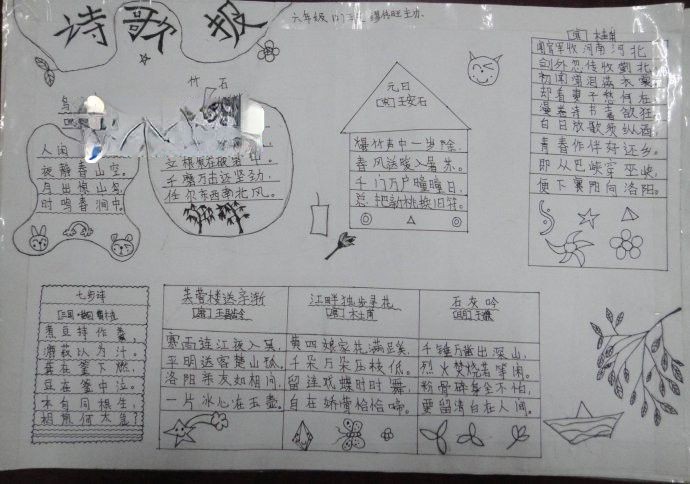 诗歌报
六年级
竹石
人闲
夜静春山空。
月出惊山鸟，
时鸣春涧中。
千磨万击还坚劲，
任尔东西南北风。
元日
[宋]王安石
爆竹声中一岁除，
春风送暖入屠苏。
千门万户曈曈日，
总把新桃换旧符。
[唐]杜甫
闻官军收河南河北
剑外忽传收蓟北，
初闻涕泪满衣裳。
却看妻子愁何在，
漫卷诗书喜欲狂。
白日放歌须纵酒，
青春作伴好还乡。
即从巴峡穿巫峡，
便下襄阳向洛阳。
七步诗
[三国·魏]曹植
煮豆持作羹，
漉菽以为汁。
萁在釜下燃，
豆在釜中泣。
本自同根生，
相煎何太急？
芙蓉楼送辛渐
[唐]王昌龄
寒雨连江夜入吴，
平明送客楚山孤。
洛阳亲友如相问，
一片冰心在玉壶。
江畔独步寻花
[唐]杜甫
黄四娘家花满蹊，
千朵万朵压枝低。
留连戏蝶时时舞，
自在娇莺恰恰啼。
石灰吟
[明]于谦
千锤万凿出深山，
烈火焚烧若等闲。
粉骨碎身全不怕，
要留清白在人间。